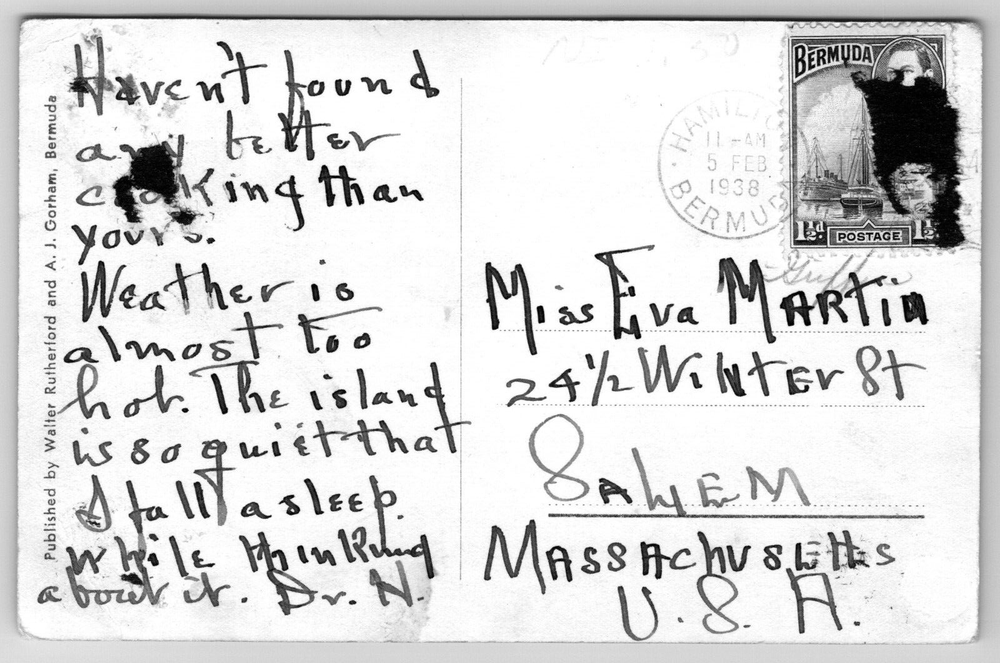 Published by Walter Rutherford and A. J. Gorham, Bermuda
Haven't found
any better
cooking than
yours.
Weather is
almost too
hot. The island
is so quiet that
I fall asleep
while thinking
about it. Dr. N.
HAMILTON
11-AM
5 FEB
1938
BERMUDA
BERMUDA
1½d POSTAGE 1½
Miss Eva Martin
24½ Winter St
Salem
Massachusetts
U.S.A.